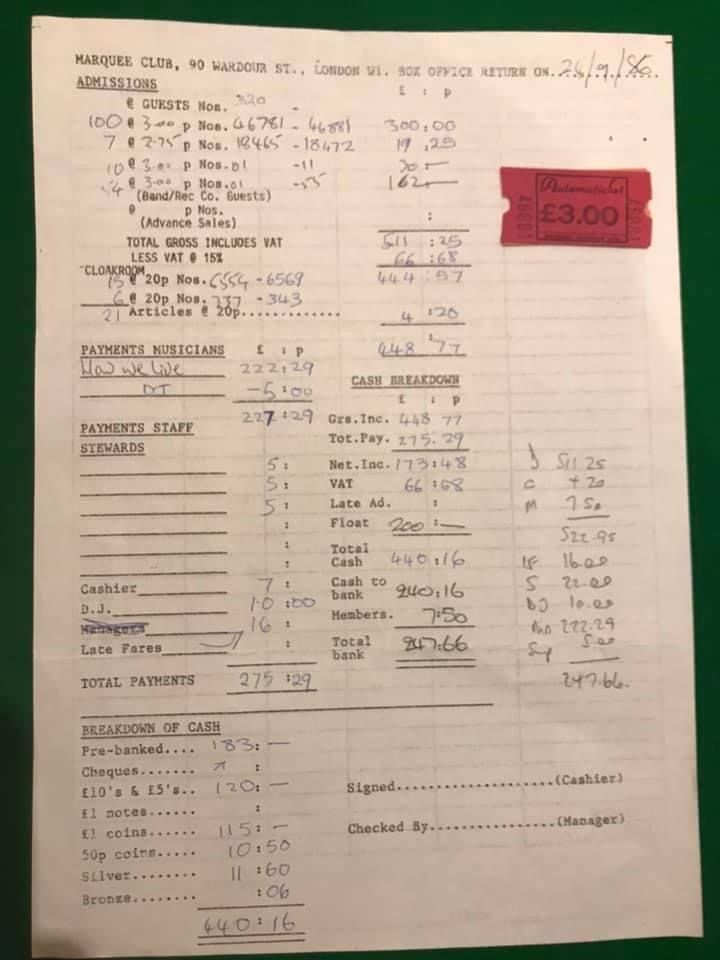 MARQUEE CLUB, 90 WARDOUR ST., LONDON W1. BOX OFFICE RETURN ON. 26/9/86.
ADMISSIONS £ : p
@ GUESTS Nos. 320 -
100 @ 3.00 p Nos. 46781 - 46881 300:00
7 @ 2.75 p Nos. 18465 - 18472 19:25
10 @ 3.00 p Nos. 01 -11 30 : —
54 @ 3.00 p Nos. 01 -55 162 —
(Band/Rec Co. Guests)
@ p Nos. :
(Advance Sales)
TOTAL GROSS INCLUDES VAT 511 :25
LESS VAT @ 15% 66 :68
CLOAKROOM 444 :57
15 @ 20p Nos. 6554 - 6569
6 @ 20p Nos. 337 - 343
21 Articles @ 20p............. 4 :20
448 :77
Automaticket
£3.00
46881
46881
PAYMENTS MUSICIANS £ : p
How we live 222:29
DT -5:00
227:29
PAYMENTS STAFF
STEWARDS
5 :
5 :
5 :
:
:
:
Cashier 7 :
D.J. 10 :00
Managers 16 :
Late Fares
TOTAL PAYMENTS 275 :29
CASH BREAKDOWN
£ : p
Grs.Inc. 448 77
Tot.Pay. 275.29
Net.Inc. 173:48
VAT 66 :68
Late Ad. :
Float 200 : —
Total Cash 440:16
Cash to bank 240:16
Members. 7:50
Total bank 247:66
D 511.25
C 4 20
M 7.50
522.95
LF 16.00
S 22.00
DJ 10.00
222.29
Sup 5.00
247.66.
BREAKDOWN OF CASH
Pre-banked.... 183: —
Cheques....... :
£10's & £5's.. 120: —
£1 notes...... :
£1 coins...... 115: —
50p coins..... 10:50
Silver........ 11 :60
Bronze........ :06
440:16
Signed....................(Cashier)
Checked By................(Manager)